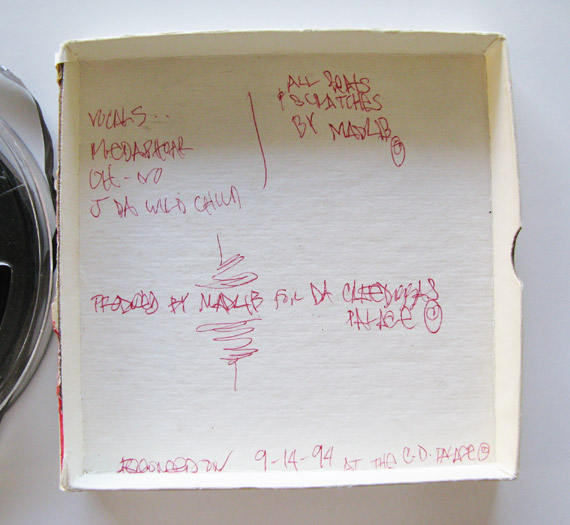 VOCALS...
MEDAPHOAR
OH-NO
J DA WILD CHILD
ALL BEATS
& SCRATCHES
BY MADLIB
PRODUCED BY MADLIB FOR DA
PALACE
RECORDED ON 9-14-94 AT THE C.D. PALACE